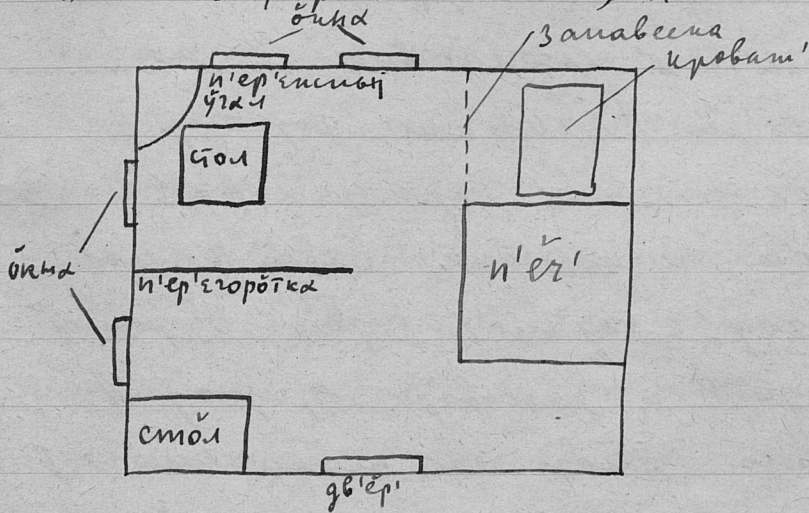 о́кна
занавеска
кроват'
п'ер'е́нсиы
у́гал
стол
о́кна
п'ер'егоро́тка
п'е́ч'
сто́л
дв'е́р'